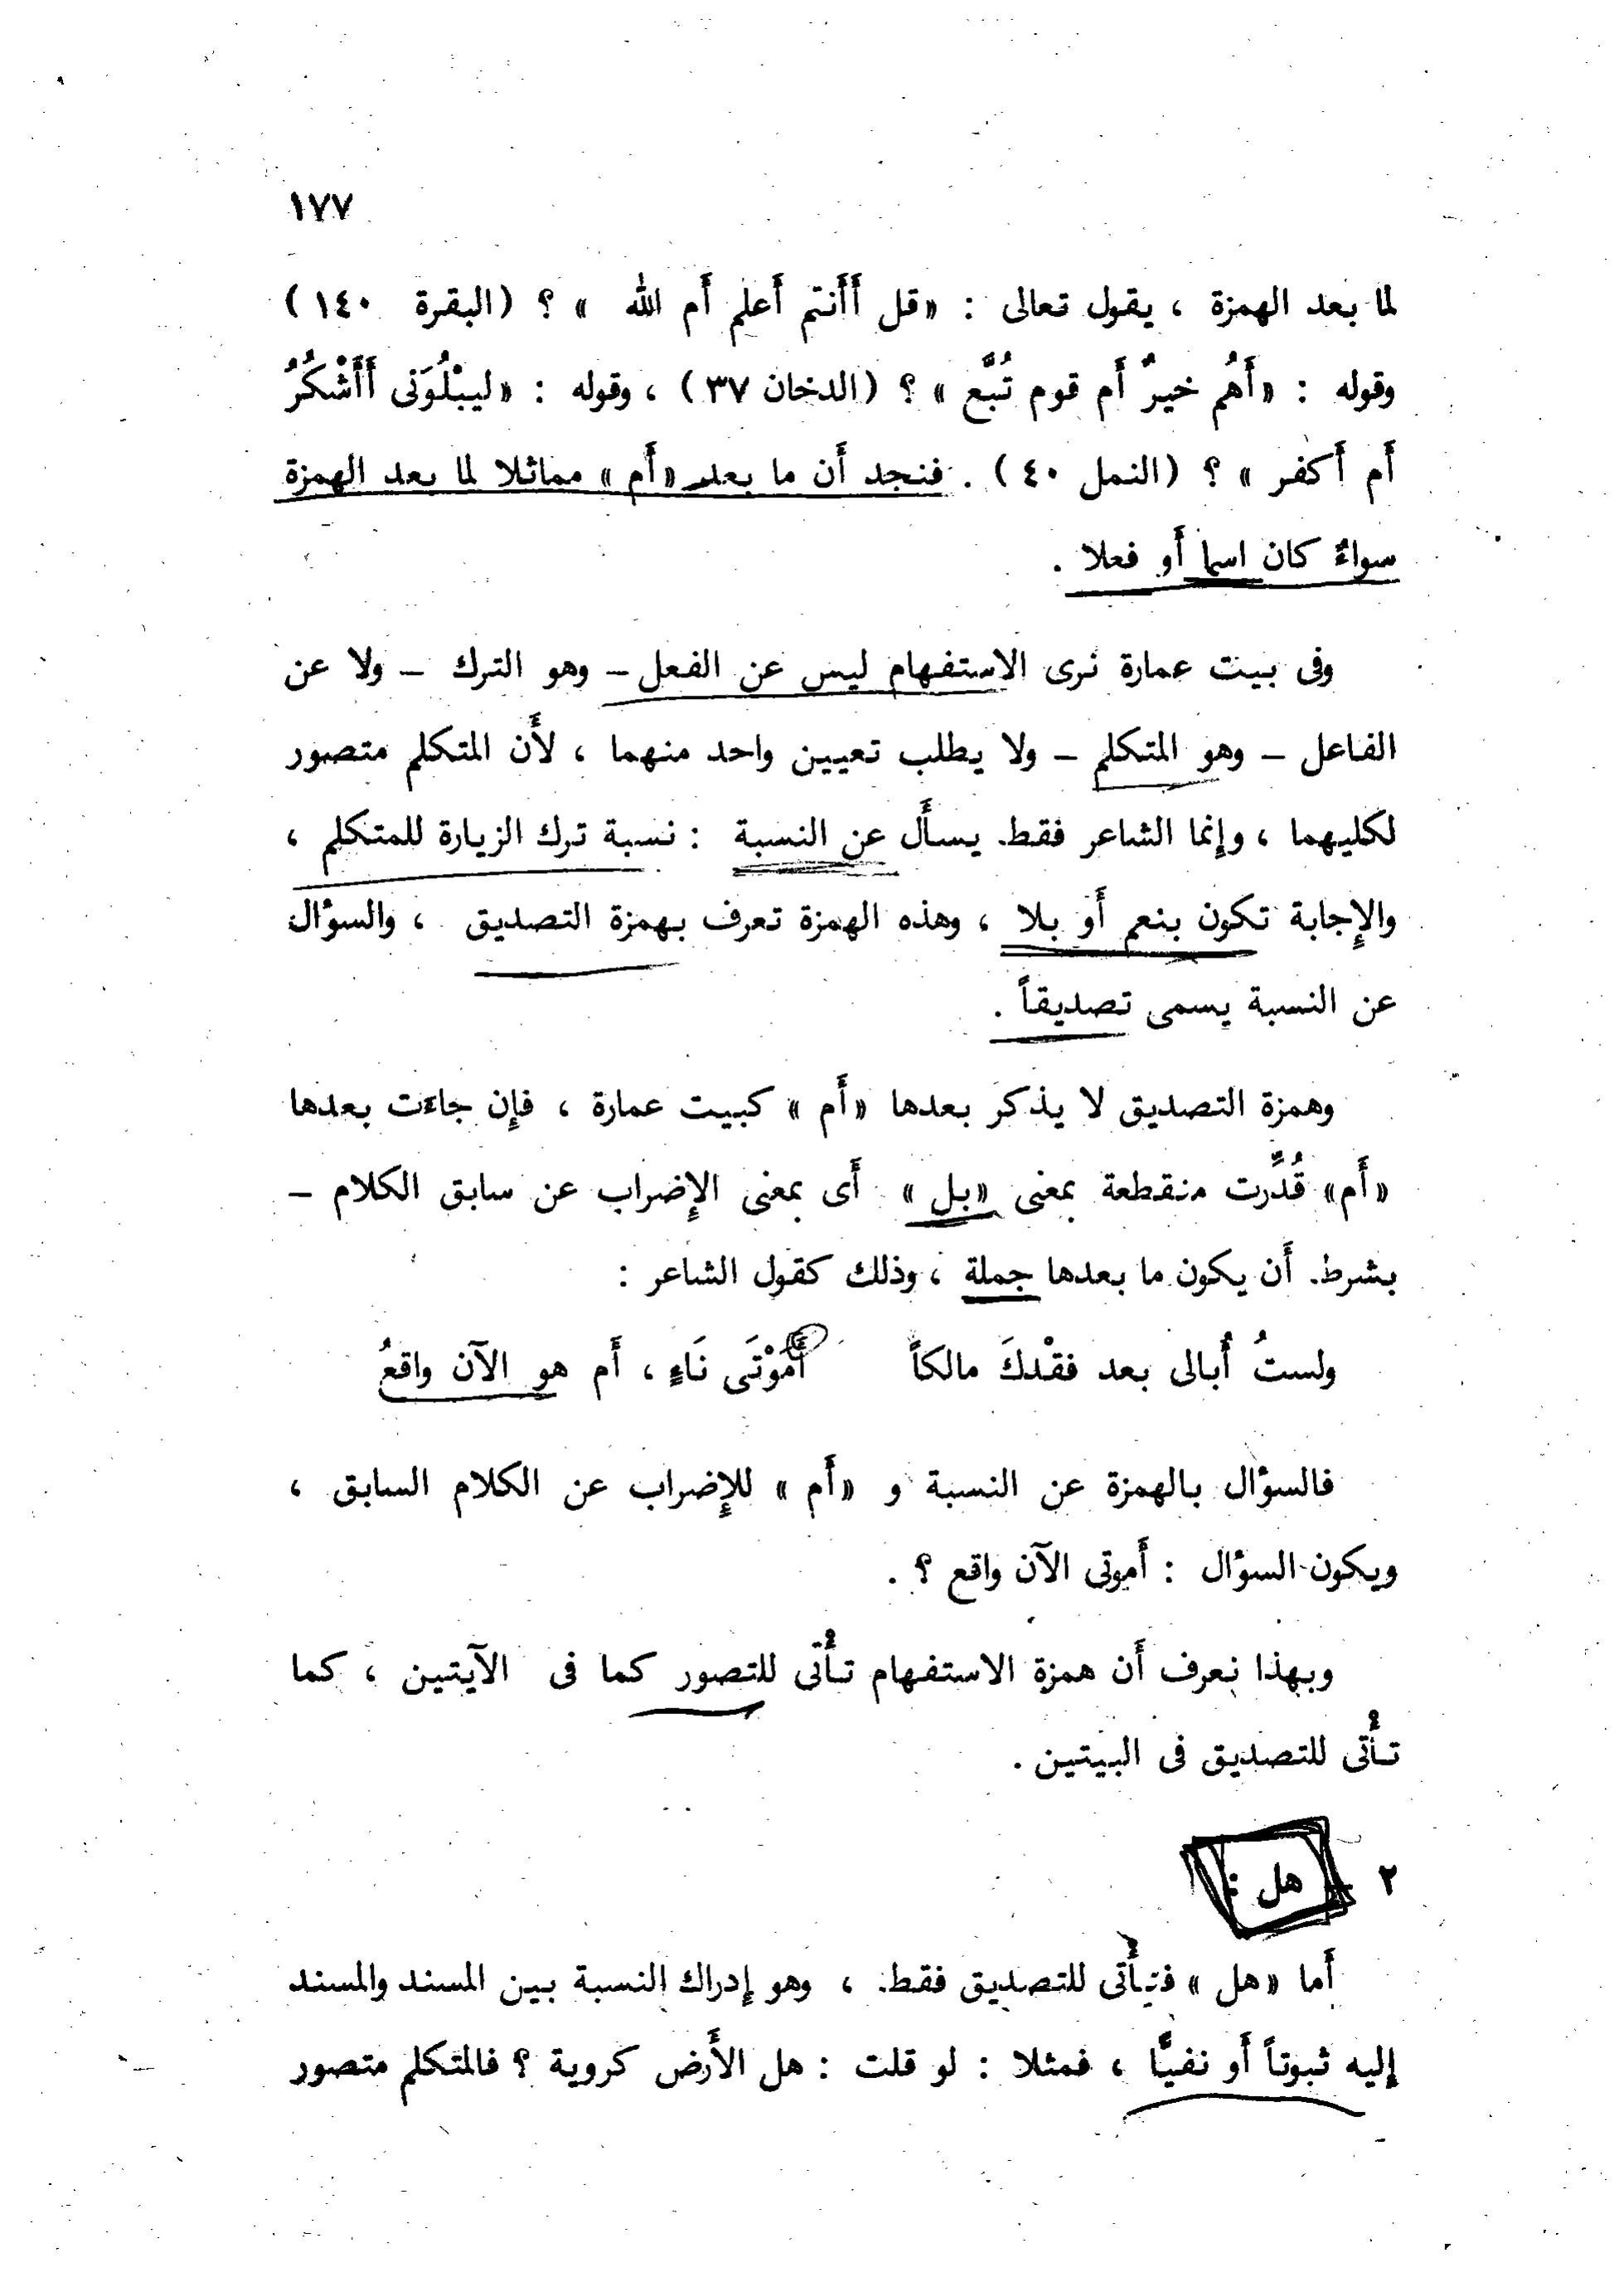 ١٧٧
لما بعد الهمزة ، يقول تعالى : «قل أأنتم أعلم أم الله » ؟ (البقرة ١٤٠)
وقوله : «أَهُم خيرٌ أم قوم تُبَّع » ؟ (الدخان ٣٧) ، وقوله : «ليبْلُوَنى أَأَشْكُرُ
أم أكفر » ؟ (النمل ٤٠) . فنجد أن ما بعد «أم» مماثلا لما بعد الهمزة
سواءٌ كان اسما أو فعلا .
وفى بيت عمارة نرى الاستفهام ليس عن الفعل – وهو الترك – ولا عن
الفاعل – وهو المتكلم – ولا يطلب تعيين واحد منهما ، لأن المتكلم متصور
لكليهما ، وإنما الشاعر فقط يسأل عن النسبة : نسبة ترك الزيارة للمتكلم ،
والإجابة تكون بنعم أو بلا ، وهذه الهمزة تعرف بهمزة التصديق ، والسؤال
عن النسبة يسمى تصديقاً .
وهمزة التصديق لا يذكر بعدها «أم» كبيت عمارة ، فإن جاءت بعدها
«أم» قُدِّرت منقطعة بمعنى «بل» أى بمعنى الإضراب عن سابق الكلام –
بشرط أن يكون ما بعدها جملة ، وذلك كقول الشاعر :
ولستُ أُبالى بعد فقْدكَ مالكاً أَمَوْتَى نَاءٍ ، أم هو الآن واقعُ
فالسؤال بالهمزة عن النسبة و «أم» للإضراب عن الكلام السابق ،
ويكون السؤال : أموتى الآن واقع ؟ .
وبهذا نعرف أن همزة الاستفهام تأتى للتصور كما فى الآيتين ، كما
تأتى للتصديق فى البيتين .
٢ – هل :
أما «هل» فتأتى للتصديق فقط ، وهو إدراك النسبة بين المسند والمسند
إليه ثبوتاً أو نفيًا ، فمثلا : لو قلت : هل الأرض كروية ؟ فالمتكلم متصور